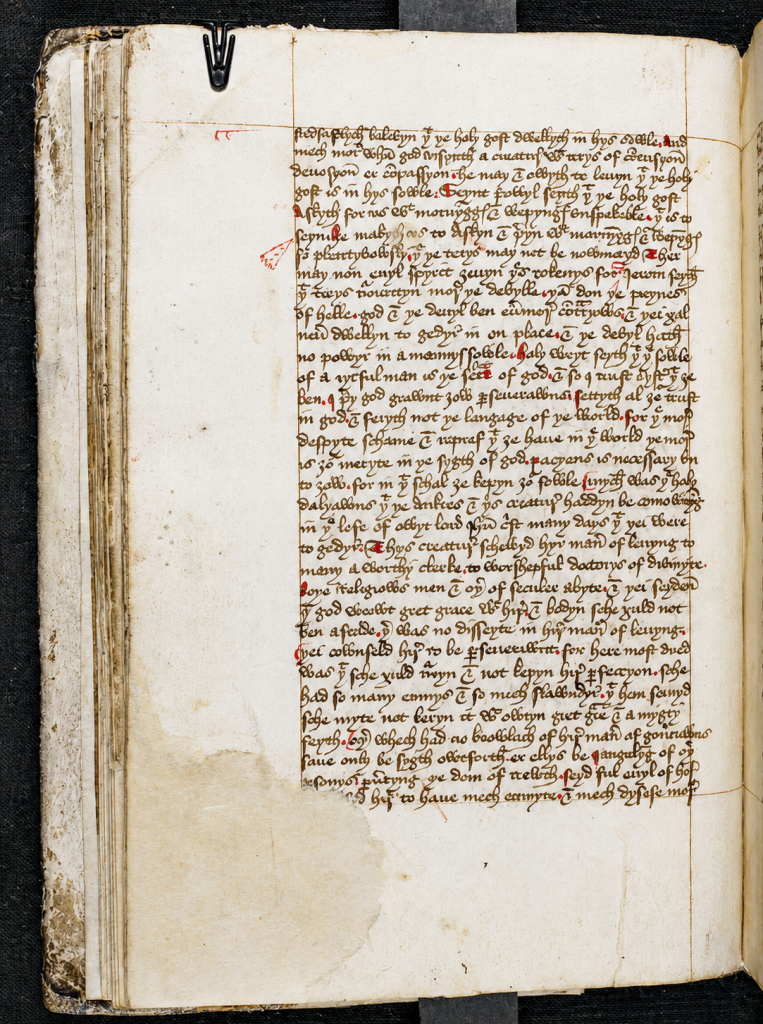 stedfastlych belevyn yͭ ye holy gost dwellyth in hys sowle. And
mech mor whā god visyteth a creatur wᵗ terys of cōtrisyon
devosyon er cōpassyon. he may & owyth to levyn yͭ ye holy
gost is in hys sowle. Seynt Powyl seyth yͭ ye holy gost
Askyth for vs wᵗ mornyggꝭ & wepyngꝭ vnspekable. yͭ is to
seyn. he makyth vs to Askyn & p̄yn wᵗ mornyggꝭ & wepygꝭ
so plentyvowsly. yͭ ye terys may not be nowmeryd. Ther
may non euyl spyrit ȝeuyn yes tokenys for Ierom seyth
yͭ terys t'mentyn mor ye deuylle. yā don ye peynes
of helle. god & ye deuyl ben eu'mor cōtraryows. & yei xal
neu' dwellyn to gedyr in on place. & ye deuyl hath
no powyr in a mannys sowle. Holy wryt seyth yͭ yͤ sowle
of a rytful man is ye sete of god. & so I trust syst' yͭ ȝe
ben. I p̄y god grawnt ȝow p̱seuerawns. settyth al ȝoʳ trust
in god. & feryth not ye langage of ye world. for yͤ mor
despyte schame & repraf yͭ ȝe haue in yͤ world ye mor
is ȝoʳ meryte in ye sygth of god. pacyens is necessary vn
to ȝow. for in yͭ schal ȝe kepyn ȝoʳ sowle. Mych was yͤ holy
dalyawns yͭ ye Ankres & yis creatur haddyn be comownyg
in yͤ lofe of owyr lord Ihū c̄st many days yͭ yei were
to gedyr. Thys creatur schewyd hyr man' of leuyng to
many a worthy clerke. to worshepful doctorys of divinyte.
boye Religiows men & oyʳ of seculer abyte. & yei seyden
yͭ god wrowt gret grace wᵗ hir. & bodyn sche xuld not
ben aferde. yʳ was no disseyte in hir man' of leuyng.
yei cownseld hir to be p̱seuerawnt. for here most dred
was yͭ sche xuld t'nyn & not kepyn hir p̱feccyon. sche
had so many enmys & so mech slawndyr. yͭ hem semyd
sche myte not beryn it wᵗ owtyn gret grace & a mygty
feyth. Oyʳ whech had no knowlach of hir man' of gou'nawns
saue only be sygth owtforth. er ellys be Iangelyng of oyʳ
p̱sonys. p̱u'tyng ye dom of trewth. seyd ful euyl of hir
hir to haue mech enmyte. & mech dysese mor